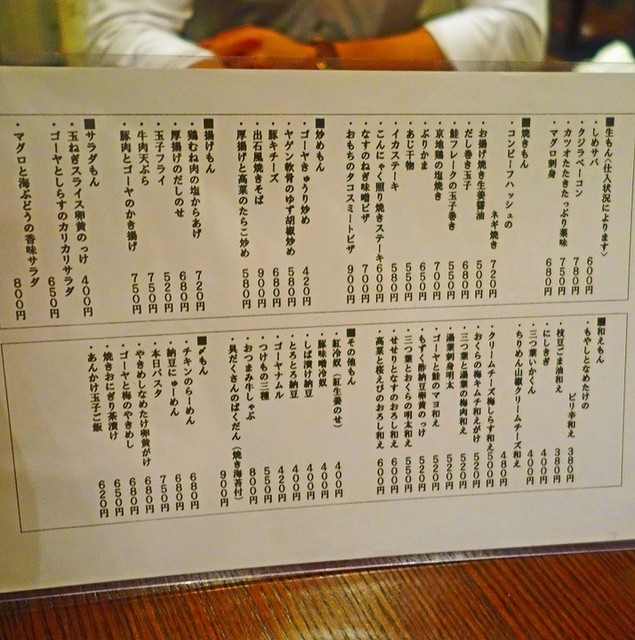 ■生もん(仕入状況によります)
・しめサバ 600円
・クジラベーコン 780円
・カツオたたきたっぷり薬味 750円
・マグロ刺身 680円
■焼きもん
・コンビーフハッシュの
ネギ焼き 720円
・お揚げ焼き生姜醤油 500円
・だし巻き玉子 680円
・鮭フレークの玉子巻き 550円
・京地鶏の塩焼き 700円
・ぶりかま 650円
・あじ干物 550円
・イカステーキ 580円
・こんにゃく照り焼きステーキ 600円
・なすのねぎ味噌ピザ 700円
・おもちのタコスミートピザ 900円
■炒めもん
・ゴーヤきゅうり炒め 420円
・ヤゲン軟骨のゆず胡椒炒め 580円
・豚キムチーズ 680円
・出石風焼きそば 900円
・厚揚げと高菜のたらこ炒め 580円
■揚げもん
・鶏むね肉の塩からあげ 720円
・厚揚げのだしのせ 680円
・玉子フライ 520円
・牛肉天ぷら 750円
・豚肉とゴーヤのかき揚げ 750円
■サラダもん
・玉ねぎスライス卵黄のっけ 400円
・ゴーヤとしらすのカリカリサラダ 650円
・マグロと海ぶどうの香味サラダ 800円
■和えもん
・もやしとなめたけの
ピリ辛和え 380円
・枝豆ごま油和え 380円
・にしきぎ 400円
・三つ葉いかくん 400円
・ちりめん山椒クリームチーズ和え 480円
・クリームチーズ梅しらす和え 500円
・おくらの梅キムチ和えがけ 520円
・三つ葉と湯葉の梅肉和え 520円
・湯葉刺身明太 520円
・ゴーヤと鮭のマヨ和え 520円
・もずく酢納豆卵黄のっけ 520円
・三つ葉とおくらの明太和え 550円
・せせりとなすのおろし和え 600円
・高菜と桜えびのおろし和え 600円
■その他もん
・紅冷奴(紅生姜のせ) 400円
・豚味噌冷奴 400円
・しば漬け納豆 400円
・とろとろ納豆 400円
・ゴーヤナムル 420円
・つけもの三種 550円
・おつまみ牛しゃぶ 800円
・具だくさんのばくだん(焼き海苔付) 900円
■〆もん
・チキンのらーめん 680円
・納豆にゅーめん 680円
・本日パスタ 750円
・やきめしなめたけ卵黄がけ 680円
・ゴーヤと梅のやきめし 680円
・焼きおにぎり茶漬け 650円
・あんかけ玉子ご飯 620円